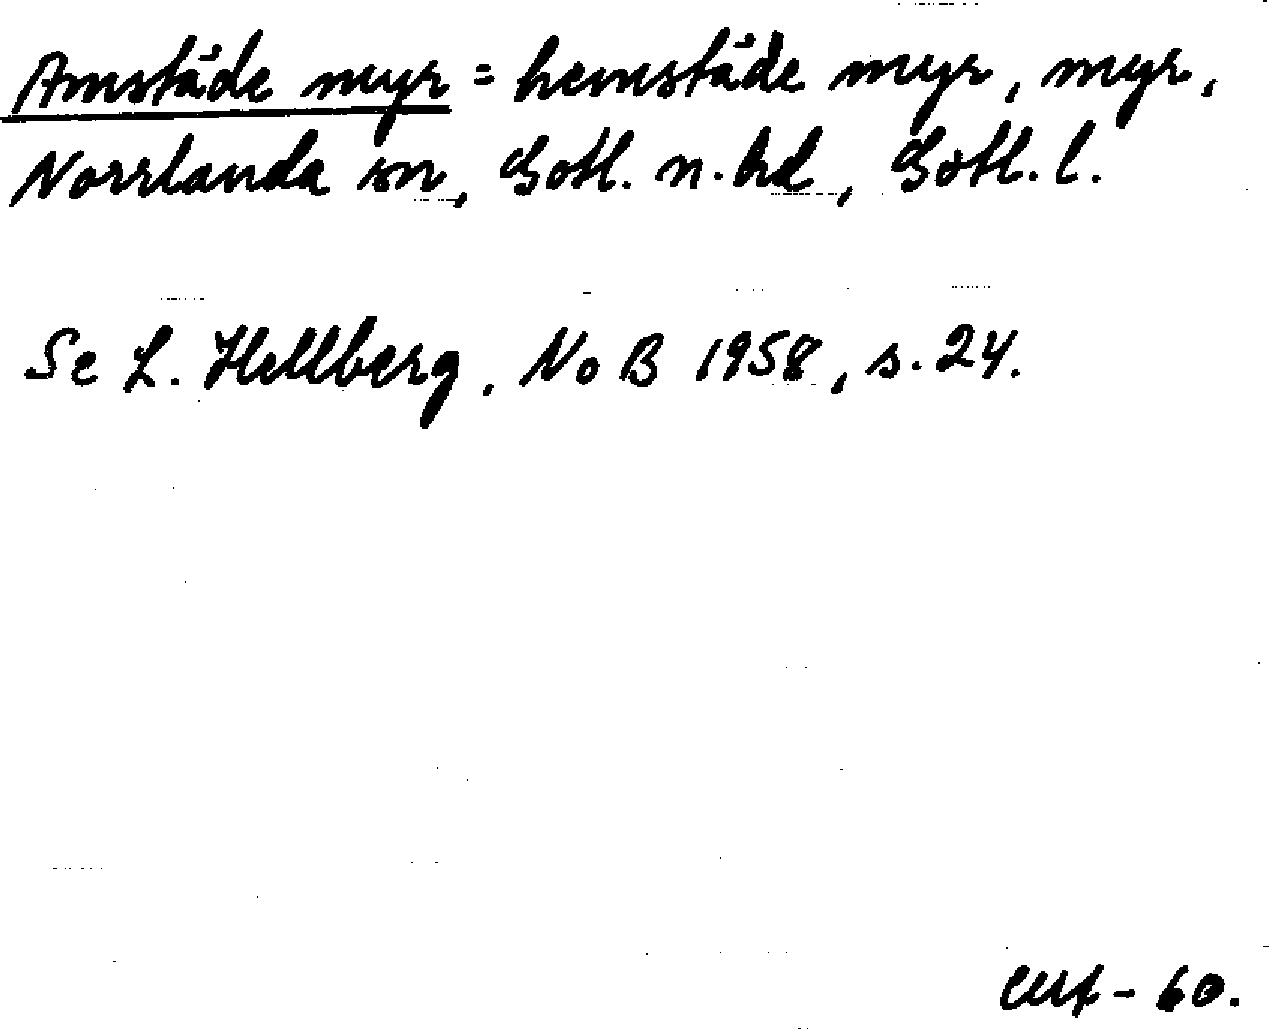 Amstäde myr = hemstäde myr, myr,
Norrlanda sn, Gotl. n. hd, Gotl. l.
Se L. Hellberg, NoB 1958, s. 24.
-60.